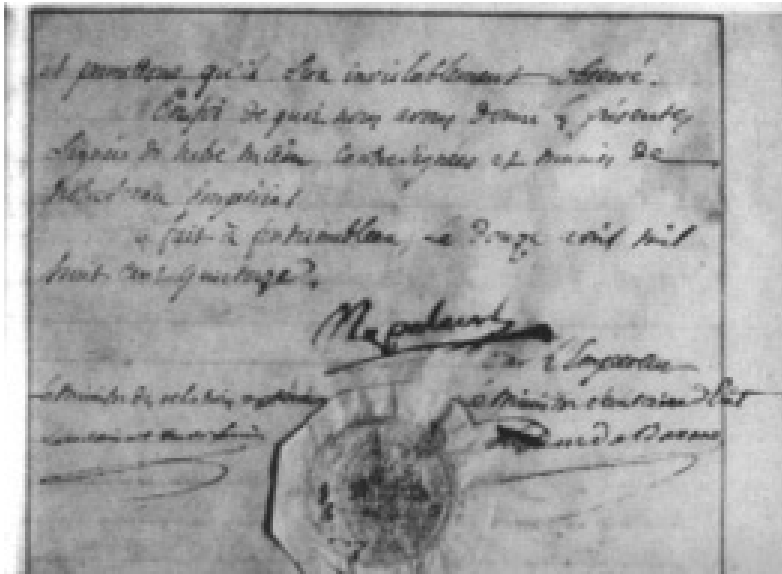 et promettons qu'il sera inviolablement observé.
En foi de quoi nous avons donné les présentes
Signées de notre main contresignées et munies de
notre sceau Impérial
fait à fontainebleau, le douze avril mil
huit cent quatorze
Napoleon
Par l'Empereur
Le Ministre des relations
Le Ministre d'Etat